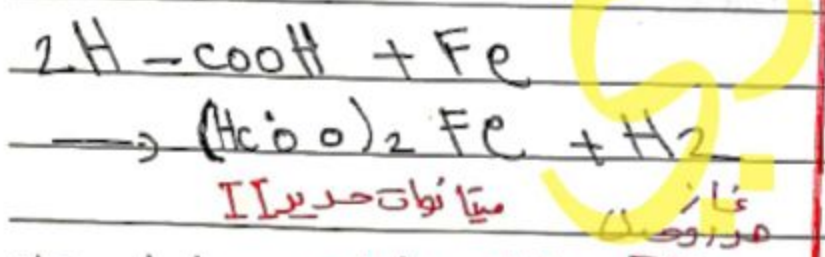 2H-COOH + Fe
→ (HCOO)2 Fe + H2
ميتانوات حديد II غاز
هدروجين